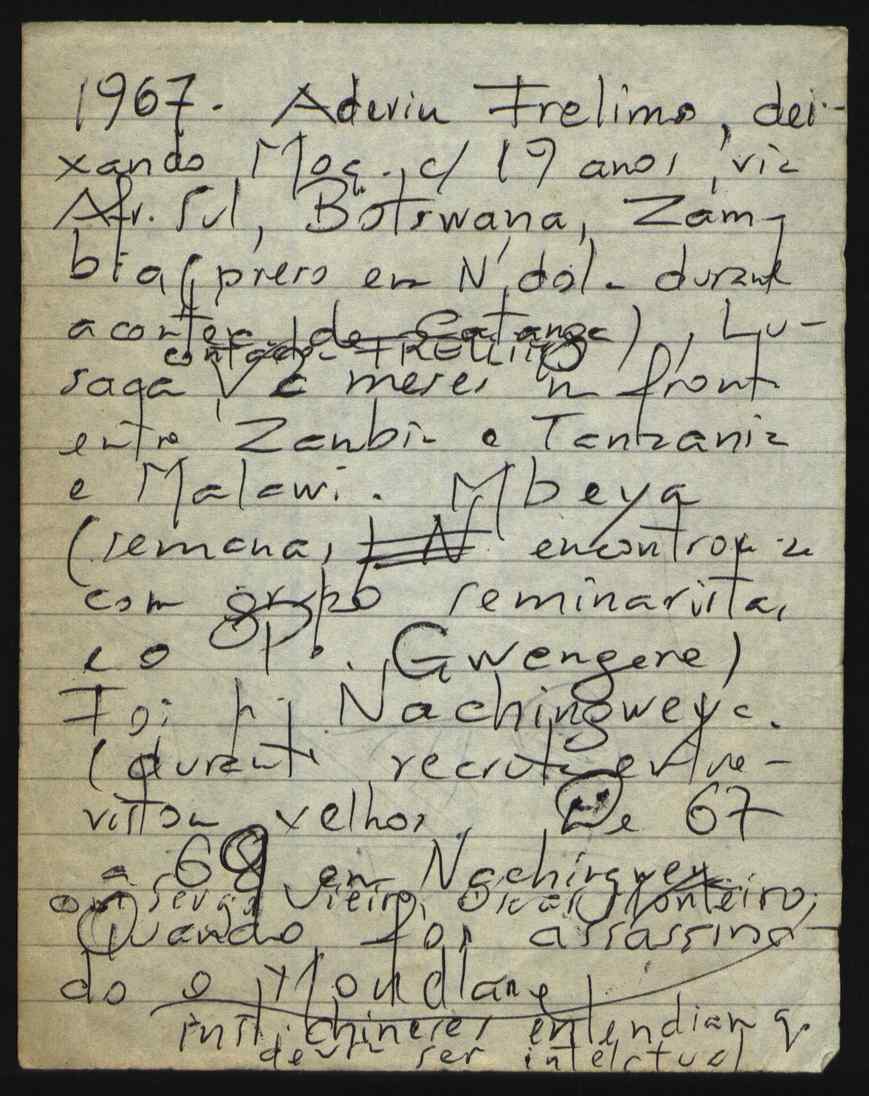 1967. Aderiu Frelimo, dei-
xando Moç., c/ 19 anos, via
Afr. Sul, Botswana, Zâm-
bia (preso em N'dola durante
a confer. de Catanga), Lu-
contado FRELIMO
saga, meses n front
entre Zambia e Tanzania
e Malawi. Mbeya
(semanas, encontrou-se
com grupo seminaristas
e o Gwengere)
Foi p. Nachingweya.
(durante recruta entre-
vistou velhos. De 67
a 69 em Nachingweya
com Sergio Vieira, Oscar Monteiro,
Quando foi assassina-
do o Mondlane
inst. chineses entendiam q.
devia ser intelectual